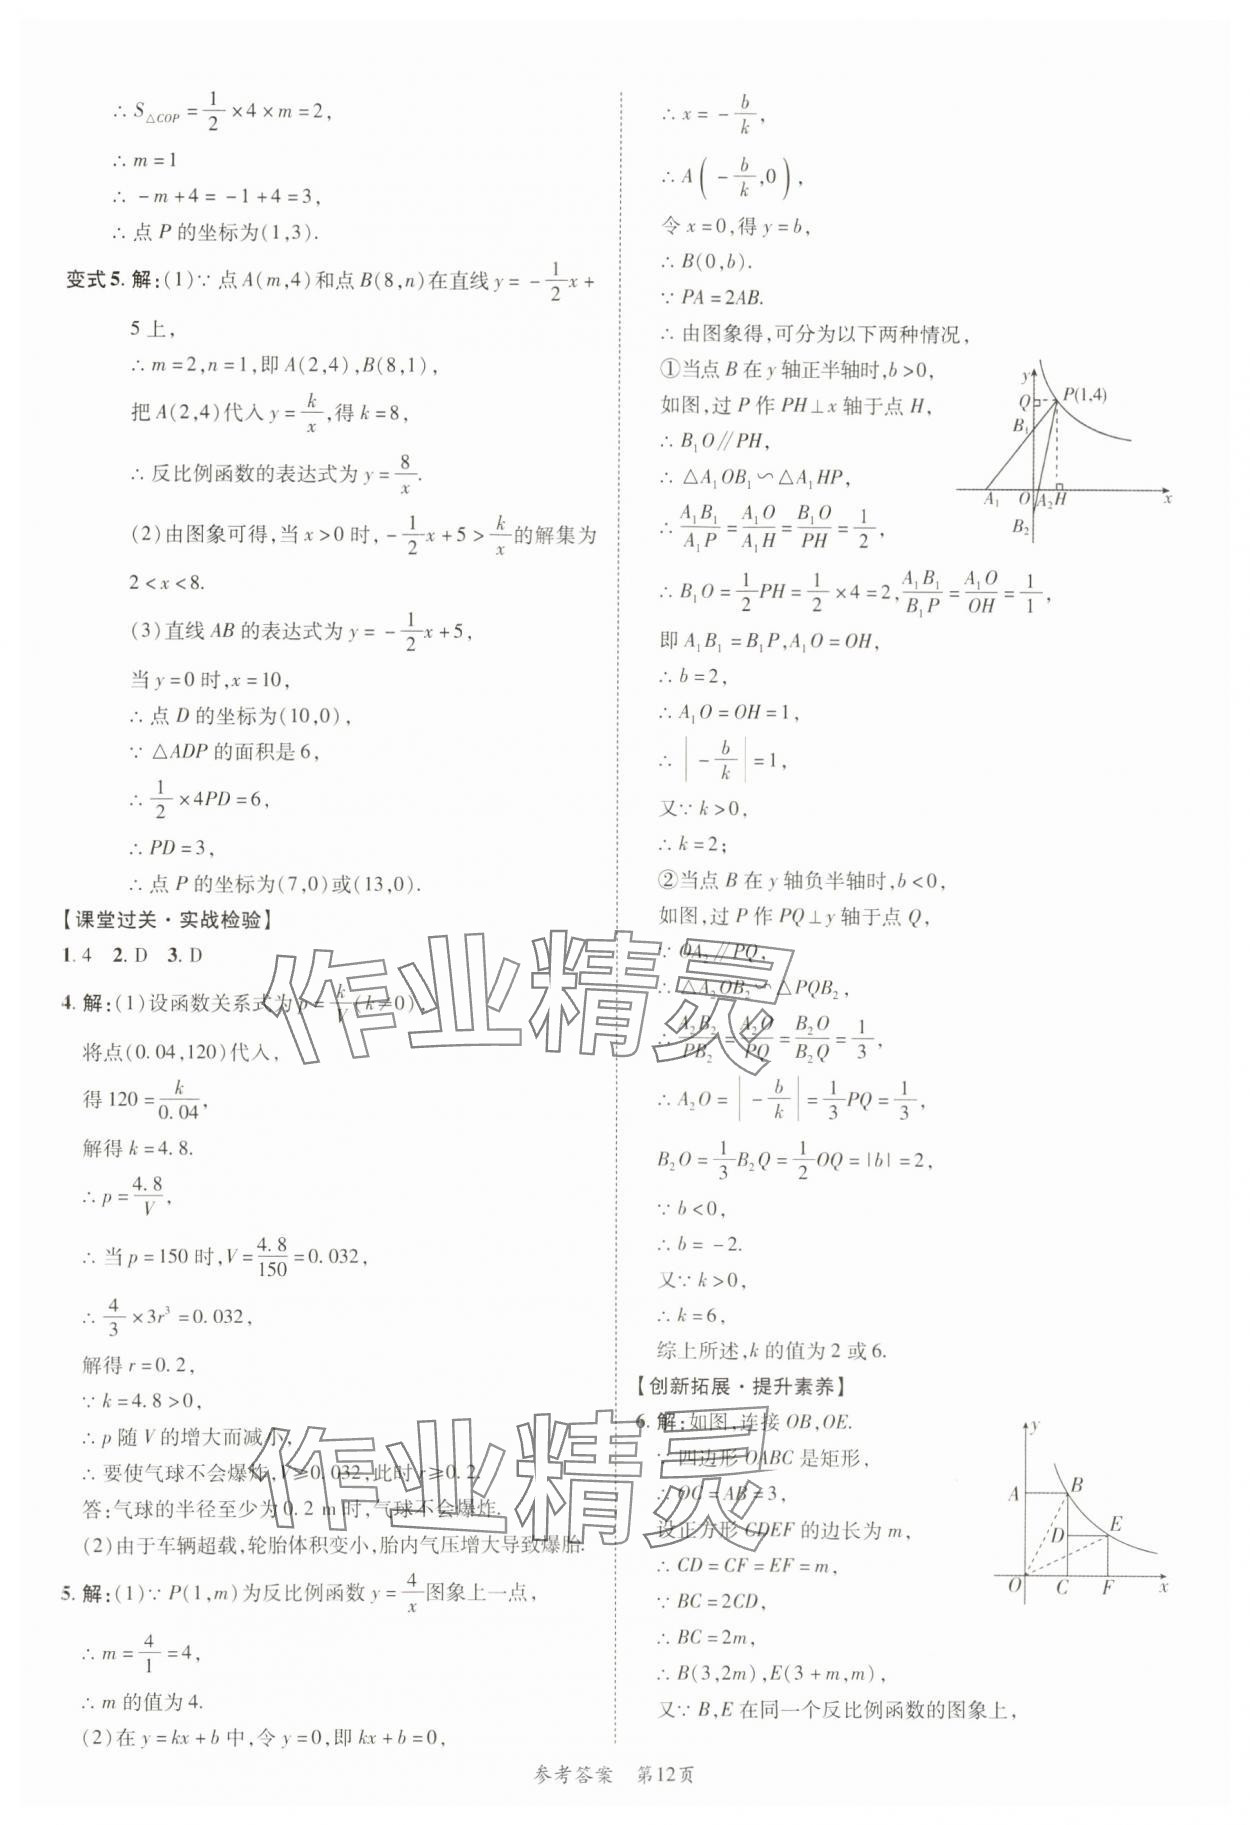 ∴ S△COP = 1/2 × 4 × m = 2,
∴ m = 1
∴ -m + 4 = -1 + 4 = 3,
∴ 点 P 的坐标为(1,3).
变式 5. 解:(1)∵ 点 A(m,4)和点 B(8,n)在直线 y = -1/2 x +
5 上,
∴ m = 2,n = 1,即 A(2,4),B(8,1),
把 A(2,4)代入 y = k/x,得 k = 8,
∴ 反比例函数的表达式为 y = 8/x.
(2)由图象可得,当 x > 0 时, -1/2 x + 5 > k/x 的解集为
2 < x < 8.
(3)直线 AB 的表达式为 y = -1/2 x + 5,
当 y = 0 时,x = 10,
∴ 点 D 的坐标为(10,0),
∵ △ADP 的面积是 6,
∴ 1/2 × 4PD = 6,
∴ PD = 3,
∴ 点 P 的坐标为(7,0)或(13,0).
【课堂过关·实战检验】
1. 4 2. D 3. D
4. 解:(1)设函数关系式为 p = k/V (k≠0),
将点(0.04,120)代入,
得 120 = k/0.04,
解得 k = 4.8.
∴ p = 4.8/V,
∴ 当 p = 150 时,V = 4.8/150 = 0.032,
∴ 4/3 × 3r³ = 0.032,
解得 r = 0.2,
∵ k = 4.8 > 0,
∴ p 随 V 的增大而减小,
∴ 要使气球不会爆炸,V ≥ 0.032,此时 r ≥ 0.2.
答:气球的半径至少为 0.2 m 时,气球不会爆炸.
(2)由于车辆超载,轮胎体积变小,胎内气压增大导致爆胎.
5. 解:(1)∵ P(1,m)为反比例函数 y = 4/x 图象上一点,
∴ m = 4/1 = 4,
∴ m 的值为 4.
(2)在 y = kx + b 中,令 y = 0,即 kx + b = 0,
∴ x = -b/k,
∴ A(-b/k,0),
令 x = 0,得 y = b,
∴ B(0,b).
∵ PA = 2AB.
∴ 由图象得,可分为以下两种情况,
①当点 B 在 y 轴正半轴时,b > 0,
如图,过 P 作 PH⊥x 轴于点 H,
∴ B₁O∥PH,
∴ △A₁OB₁∽△A₁HP,
∴ A₁B₁/A₁P = A₁O/A₁H = B₁O/PH = 1/2,
y
Q
P(1,4)
B₁
A₁ O A₂ H x
B₂
∴ B₁O = 1/2 PH = 1/2 × 4 = 2, A₁B₁/B₁P = A₁O/OH = 1/1,
即 A₁B₁ = B₁P,A₁O = OH,
∴ b = 2,
∴ A₁O = OH = 1,
∴ |-b/k| = 1,
又∵ k > 0,
∴ k = 2;
②当点 B 在 y 轴负半轴时,b < 0,
如图,过 P 作 PQ⊥y 轴于点 Q,
∵ OA₂∥PQ,
∴ △A₂OB₂∽△PQB₂,
∴ A₂B₂/PB₂ = A₂O/PQ = B₂O/B₂Q = 1/3,
∴ A₂O = |-b/k| = 1/3 PQ = 1/3,
B₂O = 1/3 B₂Q = 1/2 OQ = |b| = 2,
∵ b < 0,
∴ b = -2.
又∵ k > 0,
∴ k = 6,
综上所述,k 的值为 2 或 6.
【创新拓展·提升素养】
6. 解:如图,连接 OB,OE.
∵ 四边形 OABC 是矩形,
∴ OC = AB = 3,
设正方形 CDEF 的边长为 m,
∴ CD = CF = EF = m,
∵ BC = 2CD,
∴ BC = 2m,
∴ B(3,2m),E(3 + m,m),
又∵ B,E 在同一个反比例函数的图象上,
y
A B
D E
O C F x
参考答案 第12页
作业精灵
作业精灵